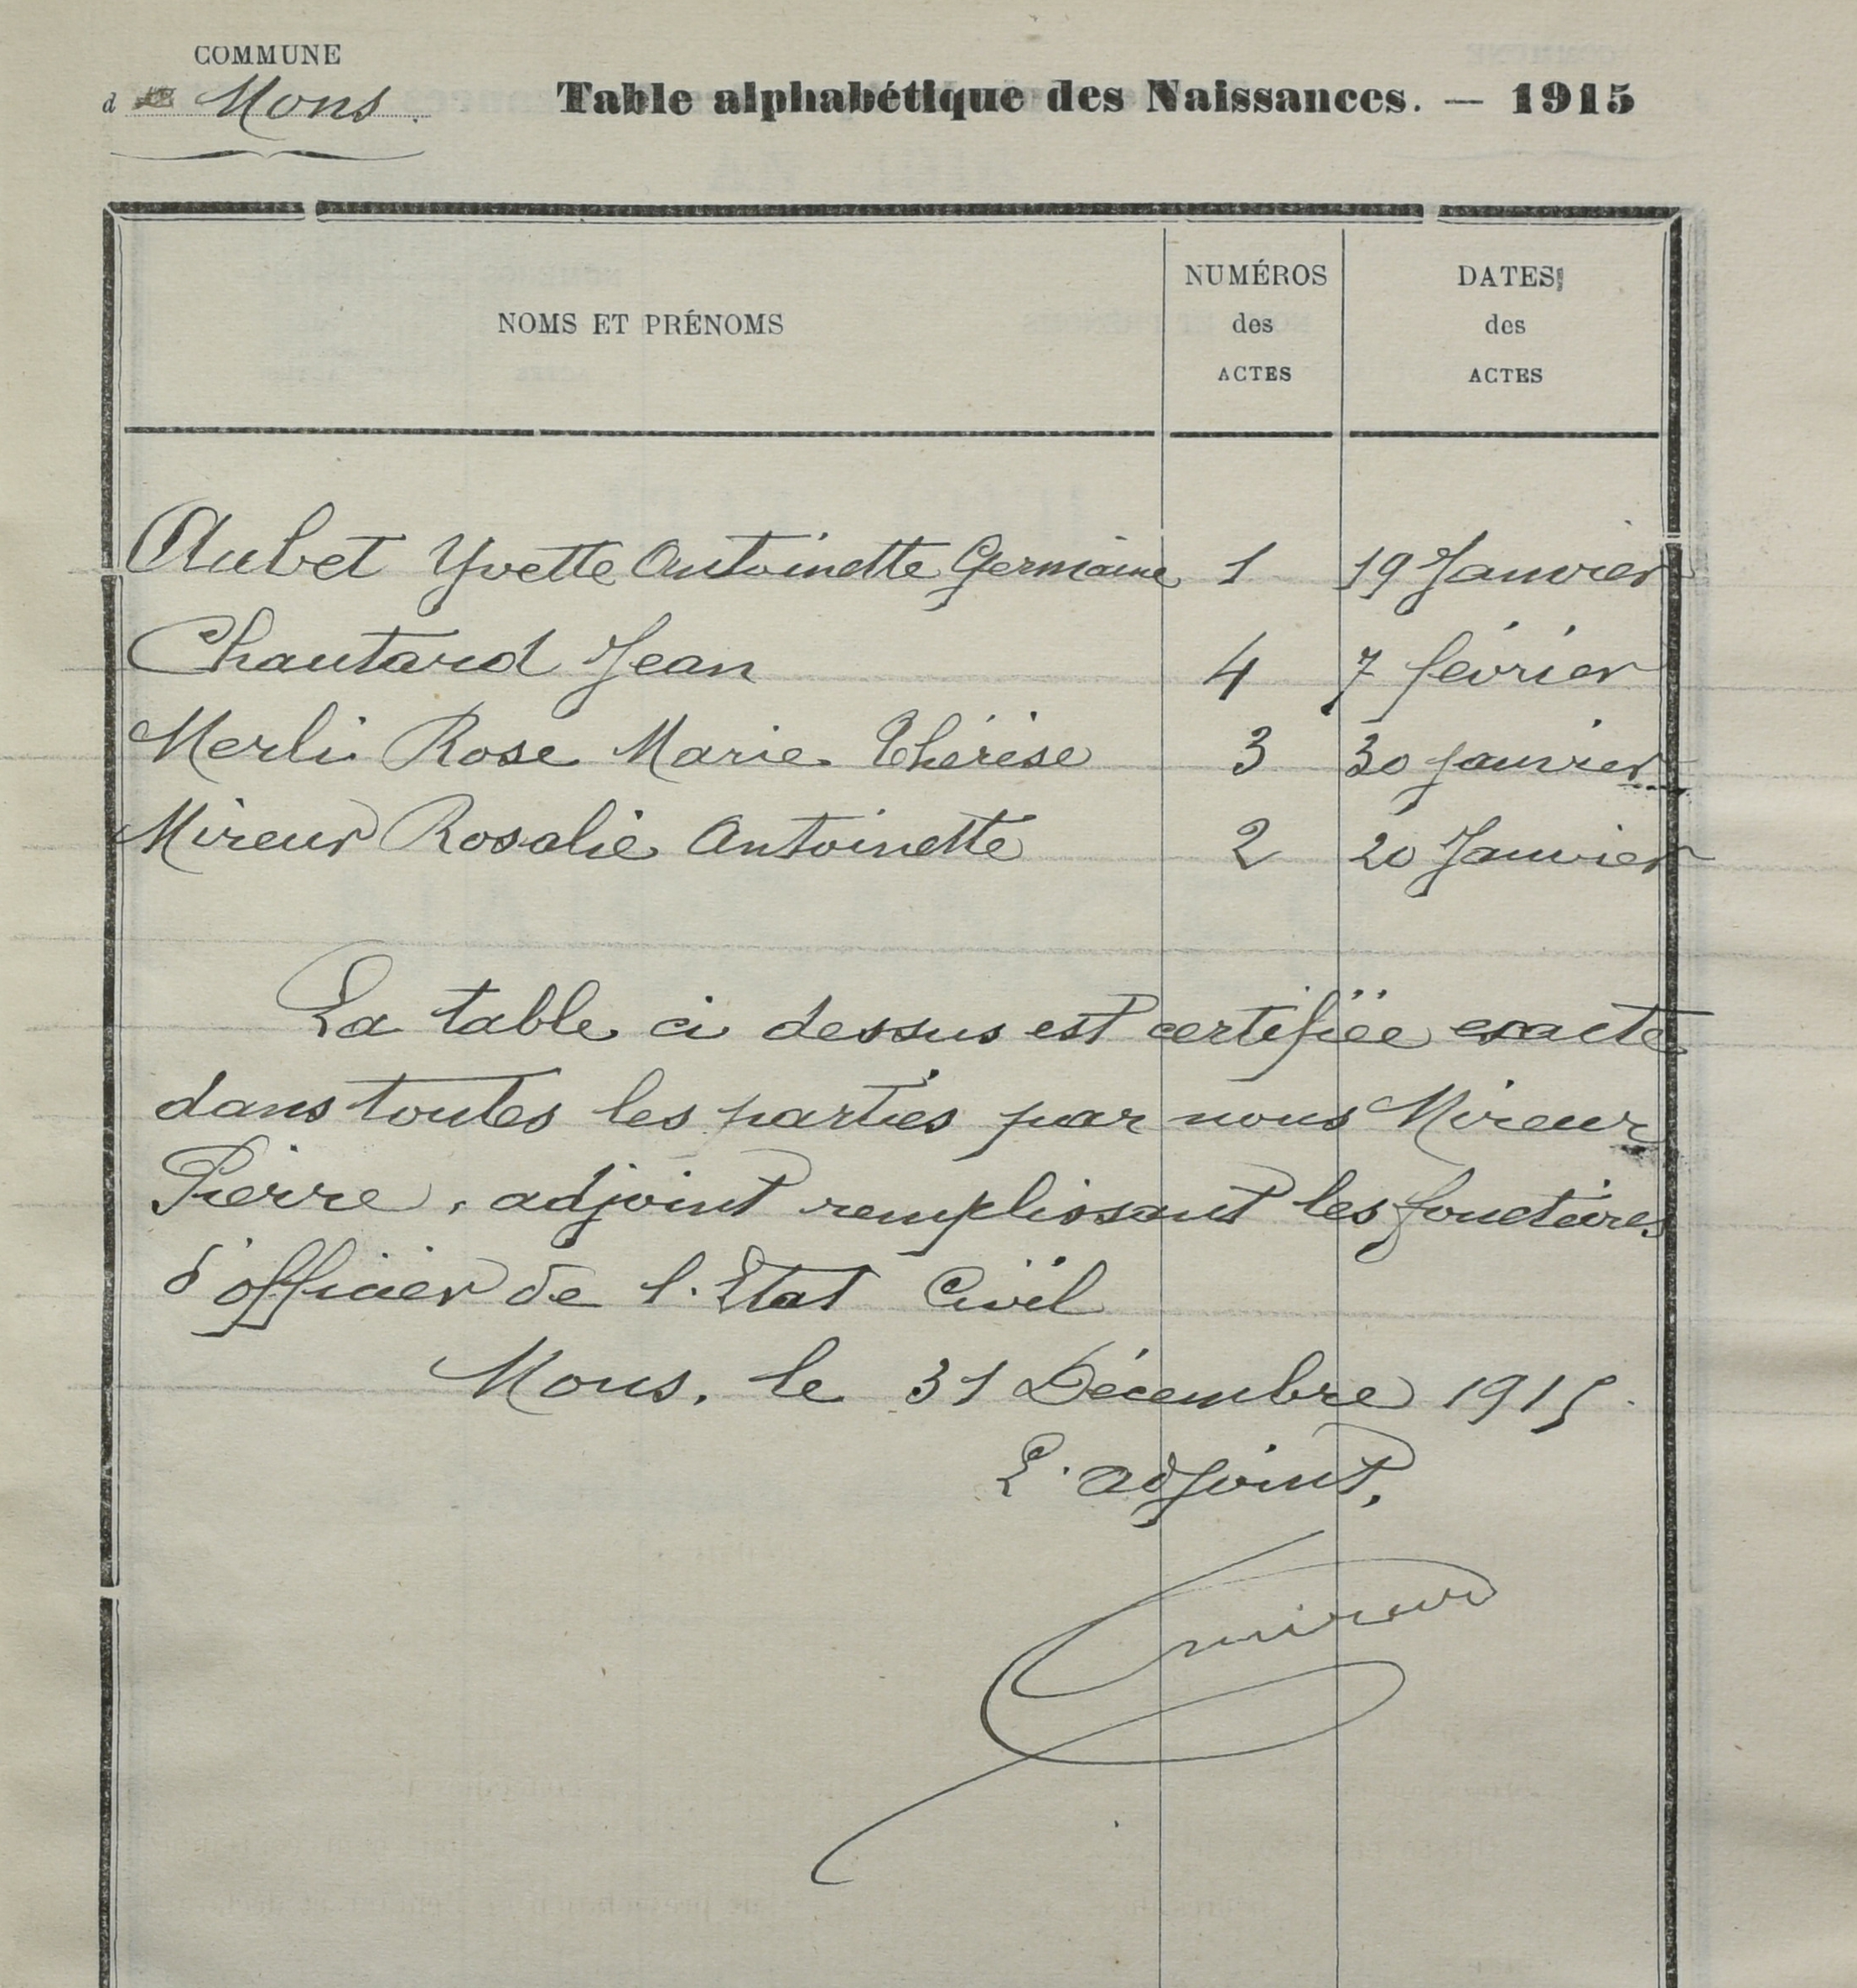 COMMUNE
d Mons.
Table alphabétique des Naissances. — 1915
NOMS ET PRÉNOMS
NUMÉROS
des
ACTES
DATES
des
ACTES
Aubet Yvette Antoinette Germaine 1 19 Janvier
Chautard Jean 4 7 février
Merli Rose Marie Thérèse 3 30 janvier
Mireur Rosalie Antoinette 2 20 Janvier
La table ci dessus est certifiée exacte
dans toutes les parties par nous Mireur
Pierre, adjoint remplissant les fonctions
d'officier de l'Etat Civil
Mons, le 31 Décembre 1915.
L'adjoint,
Mireur